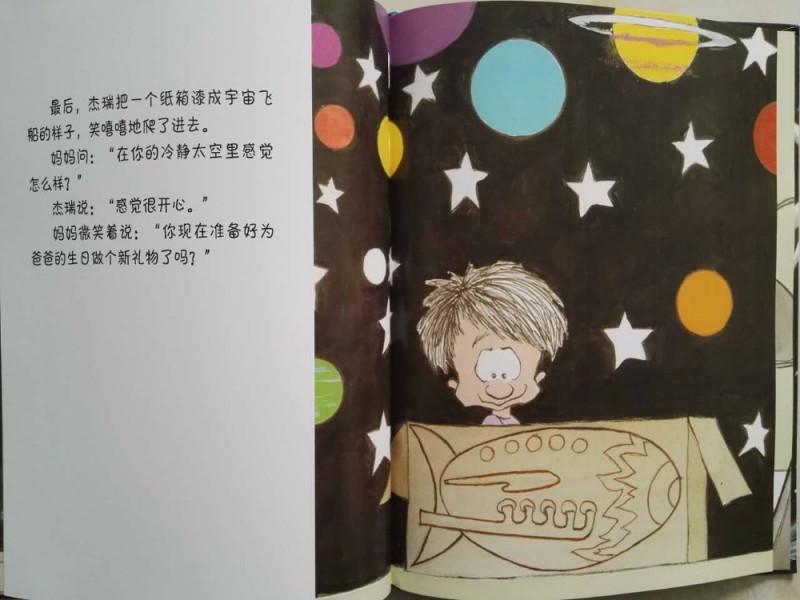 最后，杰瑞把一个纸箱漆成宇宙飞
船的样子，笑嘻嘻地爬了进去。
妈妈问：“在你的冷静太空里感觉
怎么样？”
杰瑞说：“感觉很开心。”
妈妈微笑着说：“你现在准备好为
爸爸的生日做个新礼物了吗？”